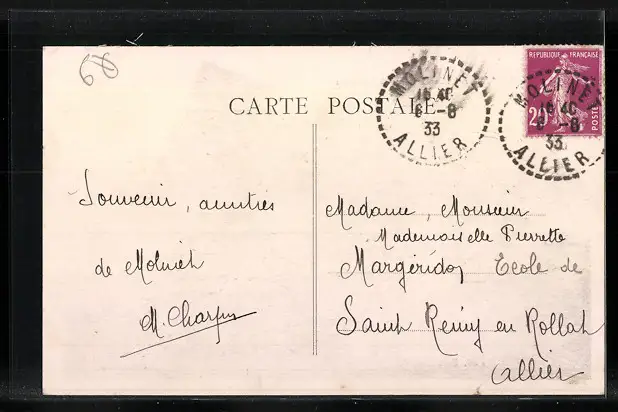 68
CARTE POSTALE
MOLINET
16 40
6 -8
33
ALLIER
REPUBLIQUE FRANÇAISE
20c
POSTES
MOLINET
16 40
6 -8
33
ALLIER
Souvenir, amitiés
de Molinet
M. Charpin
Madame, Monsieur
Mademoiselle Pierrette
Margéridon Ecole de
Saint Remy en Rollat
Allier